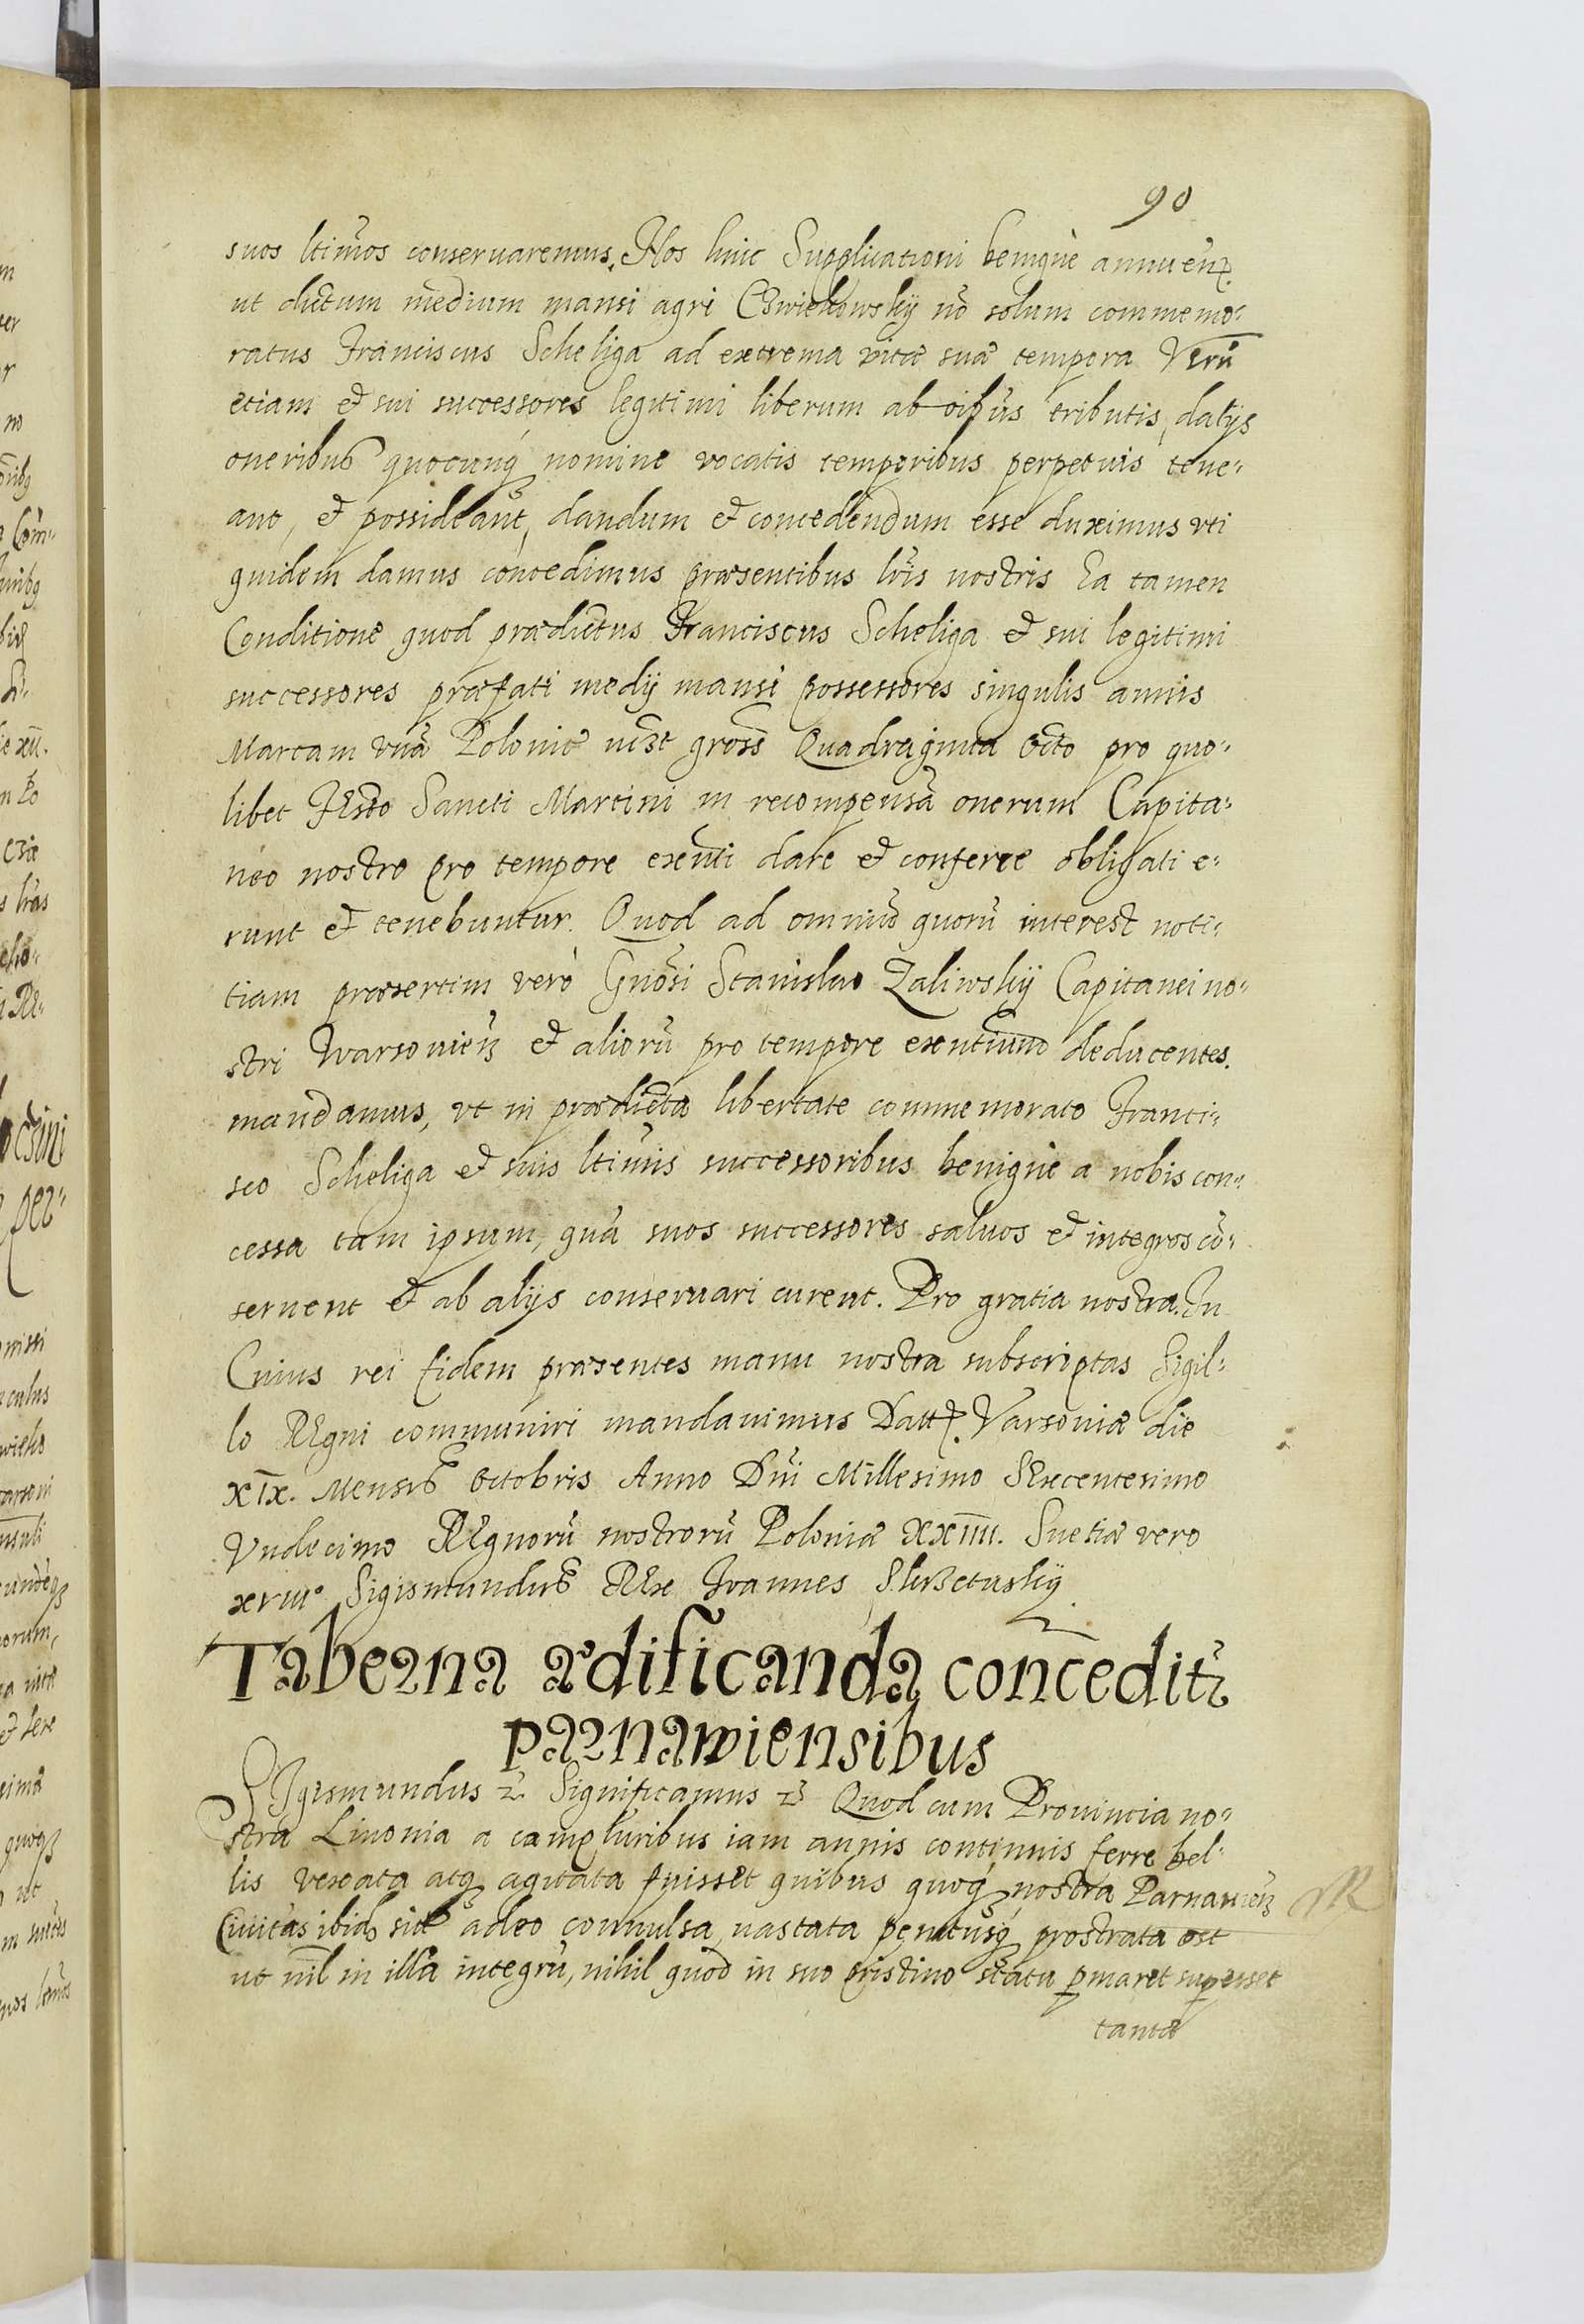 90
suos ltimos conseruaremus, Nos huic Supplicationi benignè annuen.
ut dictum medium mansi agri Czwiekowsky nō solum commemo-
ratus Franciscus Scheliga ad extrema vitæ suæ tempora Verū
etiam et sui successores legitimi liberum ab oibus tributis, datijs
oneribus quocunq nomine vocatis temporibus perpetuis tene-
ant, et possideant, dandum et concedendum esse duximus vti
quidem damus concedimus præsentibus lris nostris Ea tamen
Conditione quod prædictus Franciscus Scheliga et sui legitimi
successores præfati medij mansi possessores singulis annis
Marcam vnā Poloniæ grosš Quadraginta Octo pro quo-
libet Festo Sancti Martini in recompensā onerum Capita-
neo nostro pro tempore exenti dare et conferre obligati e-
runt et tenebuntur. Quod ad omniū quorū interest noti-
tiam præsertim verò Gnosi Stanislao Zaliwsky Capitanei no-
stri Warsouien et aliorū pro tempore exentium deducentes.
mandamus, vt in prædicta libertate commemorato Franci-
sco Scheliga et suis ltimis successoribus benignè a nobis con-
cessa tam ipsum, quā suos successores saluos et integros cō-
seruent et ab alijs conseruari curent. Pro gratia nostra. In
Cuius rei fidem præsentes manu nostra subscriptas Sigil-
lo Regni communiri mandauimus Datt. Varsouiæ die
XIX. Mensis Octobris Anno Dni Millesimo Sexcentesimo
Vndecimo Regnorū nostrorū Poloniæ XXIIII. Suetiæ vero
xviii° Sigismundus Rex Ioannes
Taberna ædificanda conceditr
parnawiensibus
SIgismundus Significamus Quod cum Prouincia no-
stra Liuonia a compluribus iam annis continuis ferre bel-
lis vexata atq agitata fuisset quibus quoq nostra Parnauien
Ciuitas ibid sita adeo conuulsa, uastata penitusq prostrata est
ut nil in illa integrū, nihil quod in suo pristino statu pmaret supesset
tanta